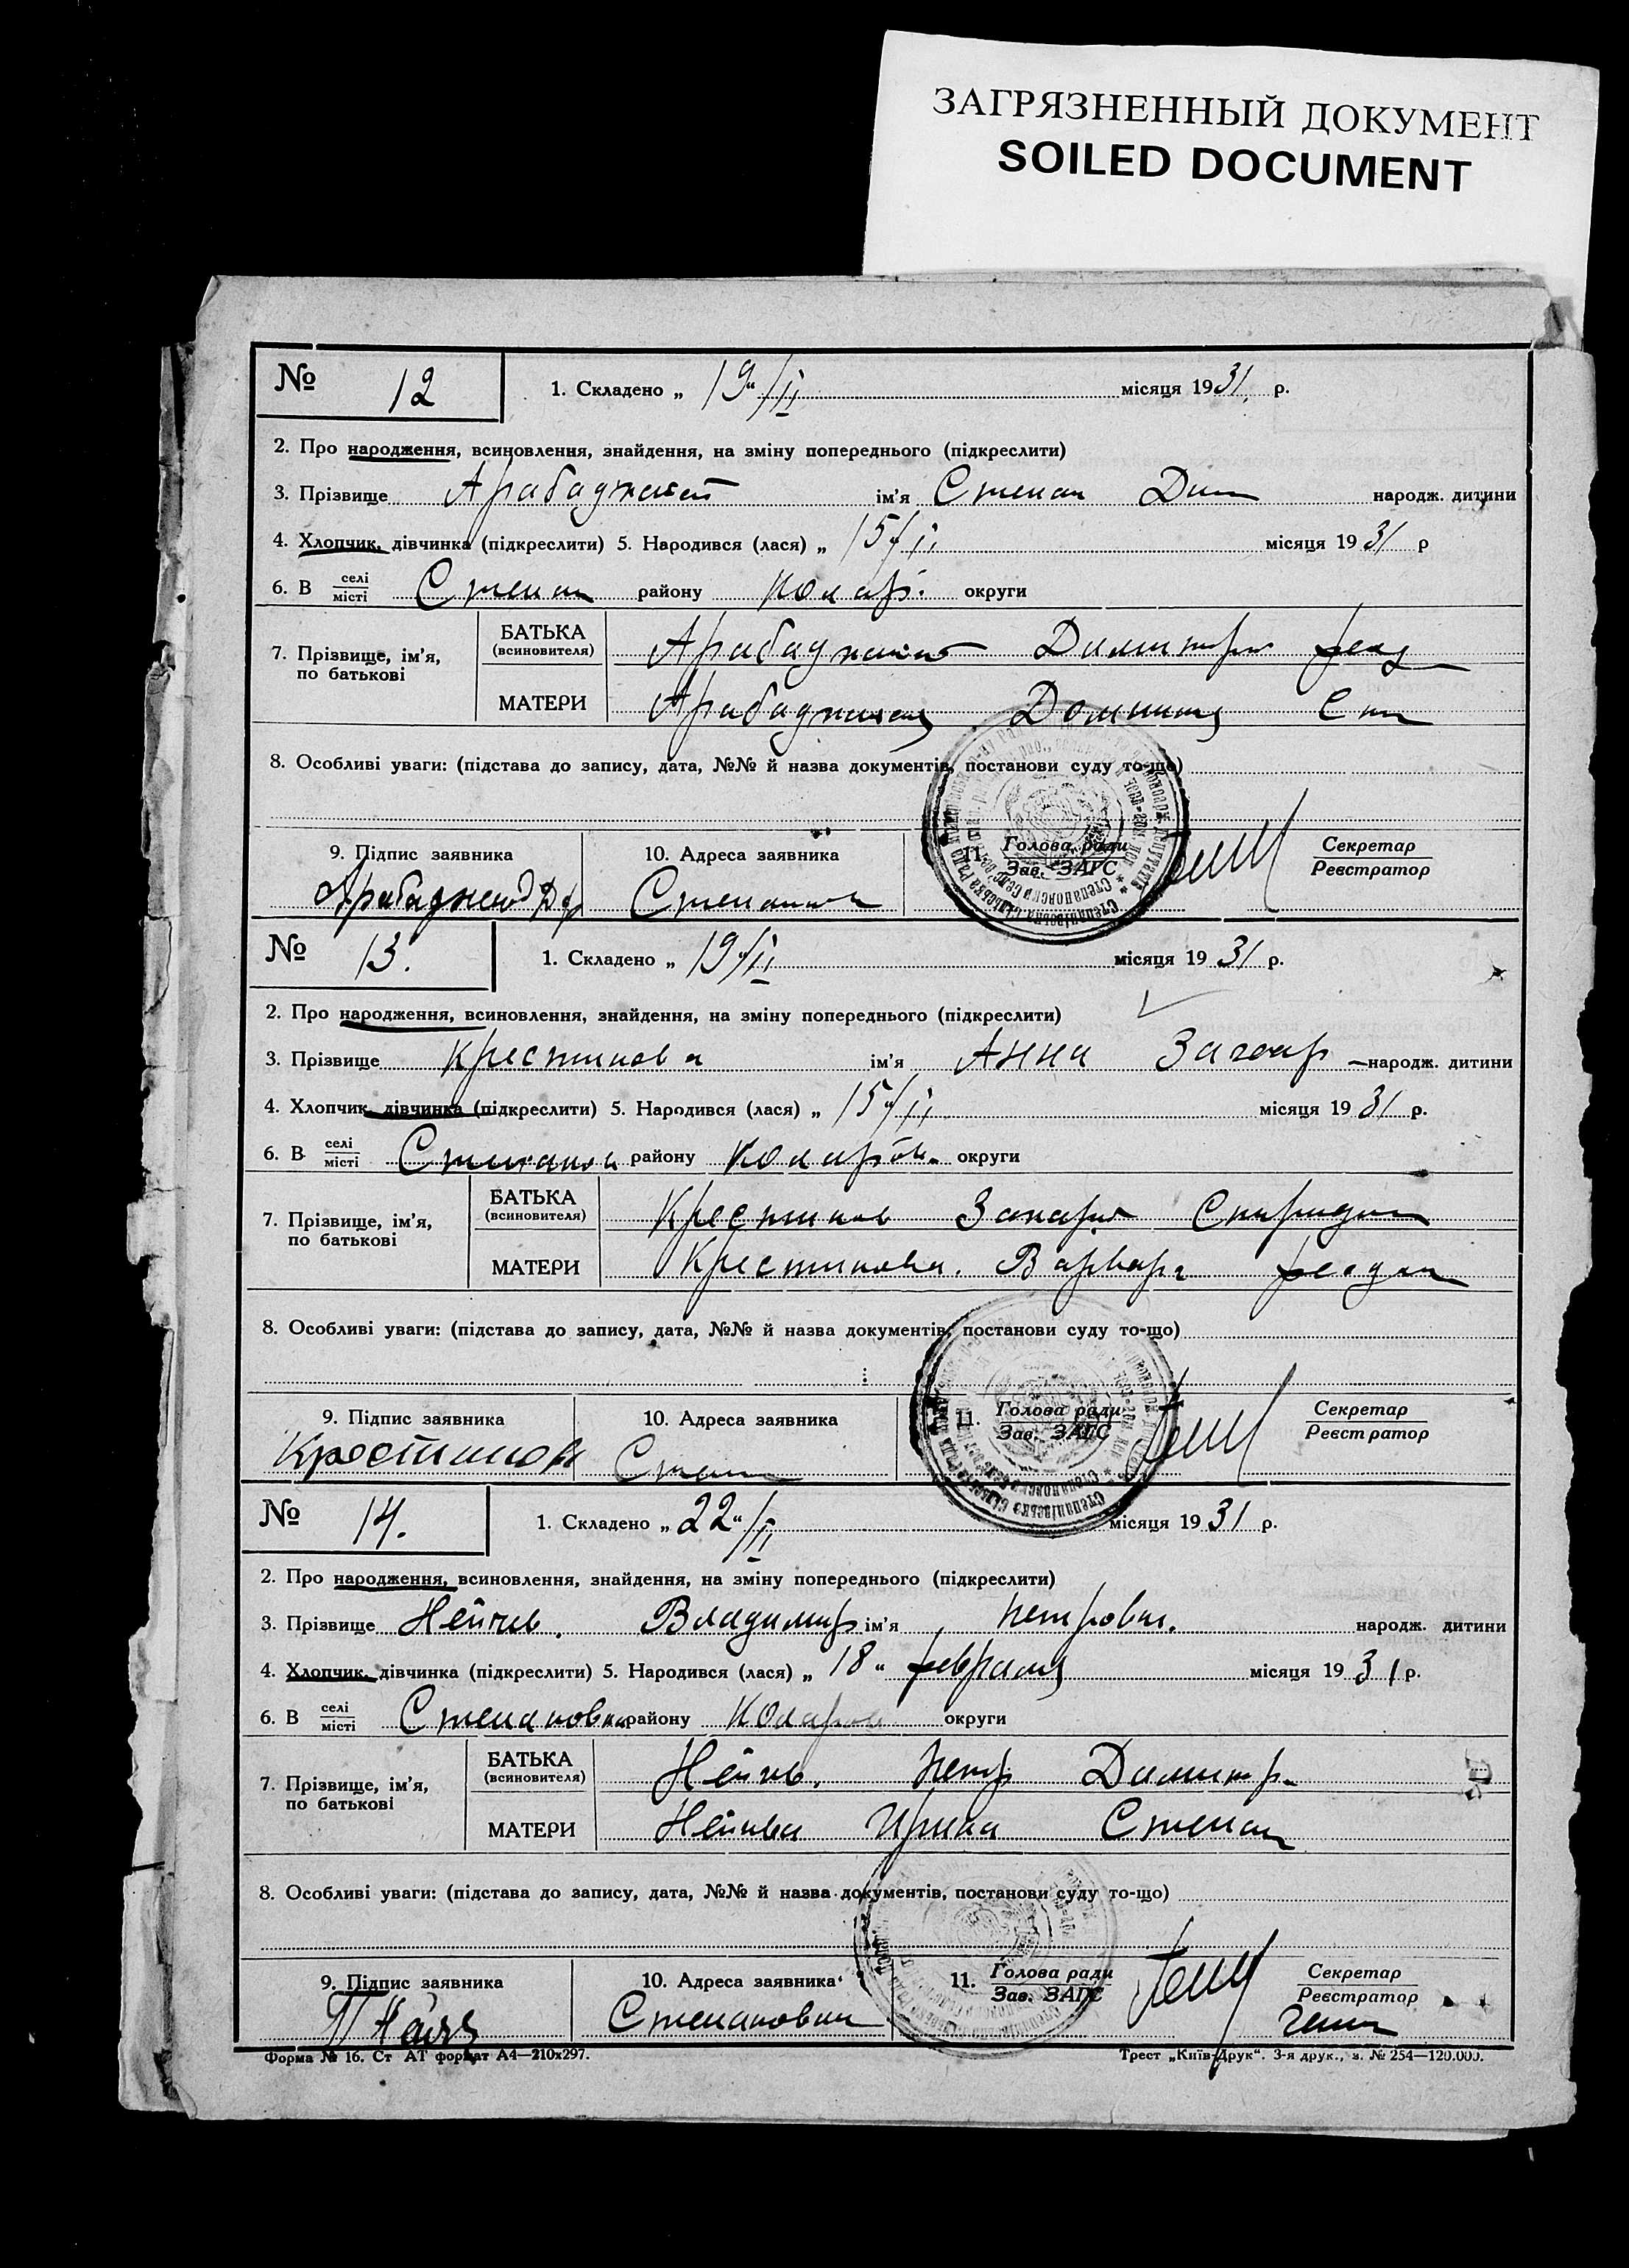 ЗАГРЯЗНЕННЫЙ ДОКУМЕНТ
SOILED DOCUMENT
№ 12 1. Складено „ 19 “ /II місяця 1931 р.
2. Про народження, всиновлення, знайдення, на зміну попереднього (підкреслити)
3. Прізвище ім'я Степан Дим народж. дитини
4. Хлопчик, дівчинка (підкреслити) 5. Народився (лася) „ 15 “ /II місяця 1931 р
6. В селі місті Степан району Колар. округи
7. Прізвище, ім'я, по батькові
БАТЬКА (всиновителя) Димитрий
МАТЕРИ
8. Особливі уваги: (підстава до запису, дата, №№ й назва документів, постанови суду то-що)
9. Підпис заявника 10. Адреса заявника 11. Голова ради Зав. ЗАГС Секретар Реєстратор
№ 13. 1. Складено „ 19 “ /II місяця 1931 р.
2. Про народження, всиновлення, знайдення, на зміну попереднього (підкреслити)
3. Прізвище Крестинова ім'я Анна Захар народж. дитини
4. Хлопчик, дівчинка (підкреслити) 5. Народився (лася) „ 15 “ /II місяця 1931 р.
6. В селі місті району Коларов. округи
7. Прізвище, ім'я, по батькові
БАТЬКА (всиновителя) Крестинов Захарий Спиридон
МАТЕРИ Крестинова. Варвара
8. Особливі уваги: (підстава до запису, дата, №№ й назва документів, постанови суду то-що)
9. Підпис заявника 10. Адреса заявника 11. Голова ради Зав. ЗАГС Секретар Реєстратор
Крестинов Степан
№ 14. 1. Складено „ 22 “ /II місяця 1931 р.
2. Про народження, всиновлення, знайдення, на зміну попереднього (підкреслити)
3. Прізвище Нейчев. Владимир ім'я Петрович. народж. дитини
4. Хлопчик, дівчинка (підкреслити) 5. Народився (лася) „ 18 “ февраля місяця 1931 р.
6. В селі місті Степановка району Колартов округи
7. Прізвище, ім'я, по батькові
БАТЬКА (всиновителя) Петр Димитр.
МАТЕРИ Ирина Степан
8. Особливі уваги: (підстава до запису, дата, №№ й назва документів, постанови суду то-що)
9. Підпис заявника 10. Адреса заявника 11. Голова ради Зав. ЗАГС Секретар Реєстратор
Степановка
Форма № 16. Ст АТ формат А4—210х297. Трест „Київ-Друк“. 3-я друк., з. № 254—120.000.